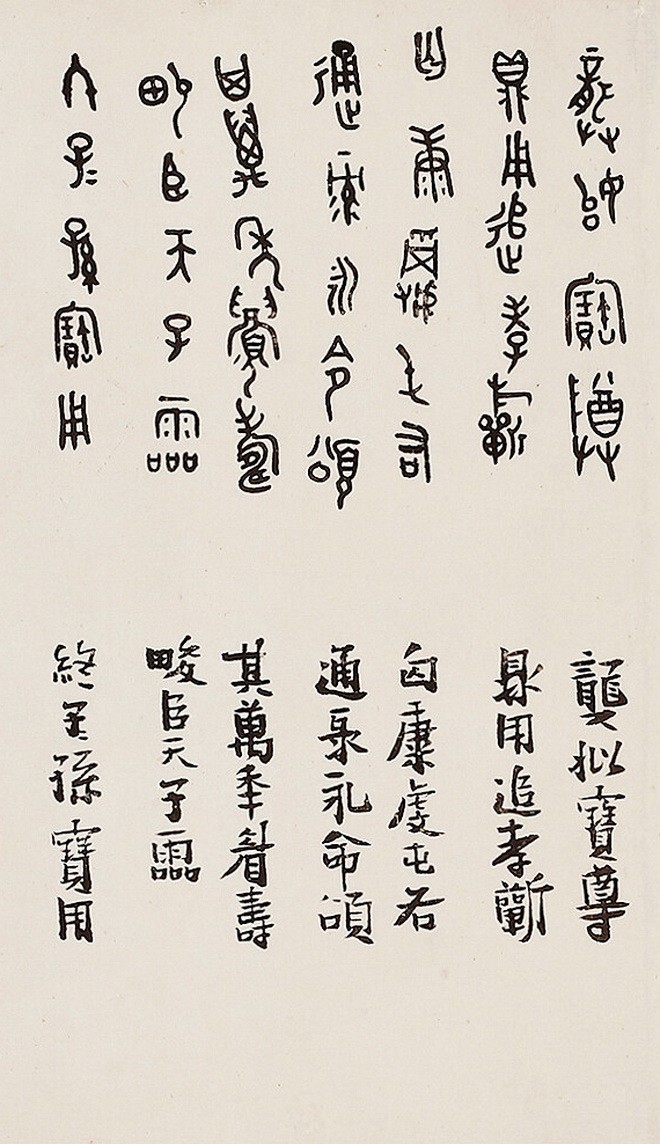 龏姒寶尊
鼎用追孝蘄
匃康虔屯右
通彔永令頌
其萬年眉壽
畯臣天子霝
冬子孫寶用
龔姒寶尊
鼎用追孝蘄
匃康虔屯右
通彔永命頌
其萬秊眉壽
畯臣天子霝
終子孫寶用